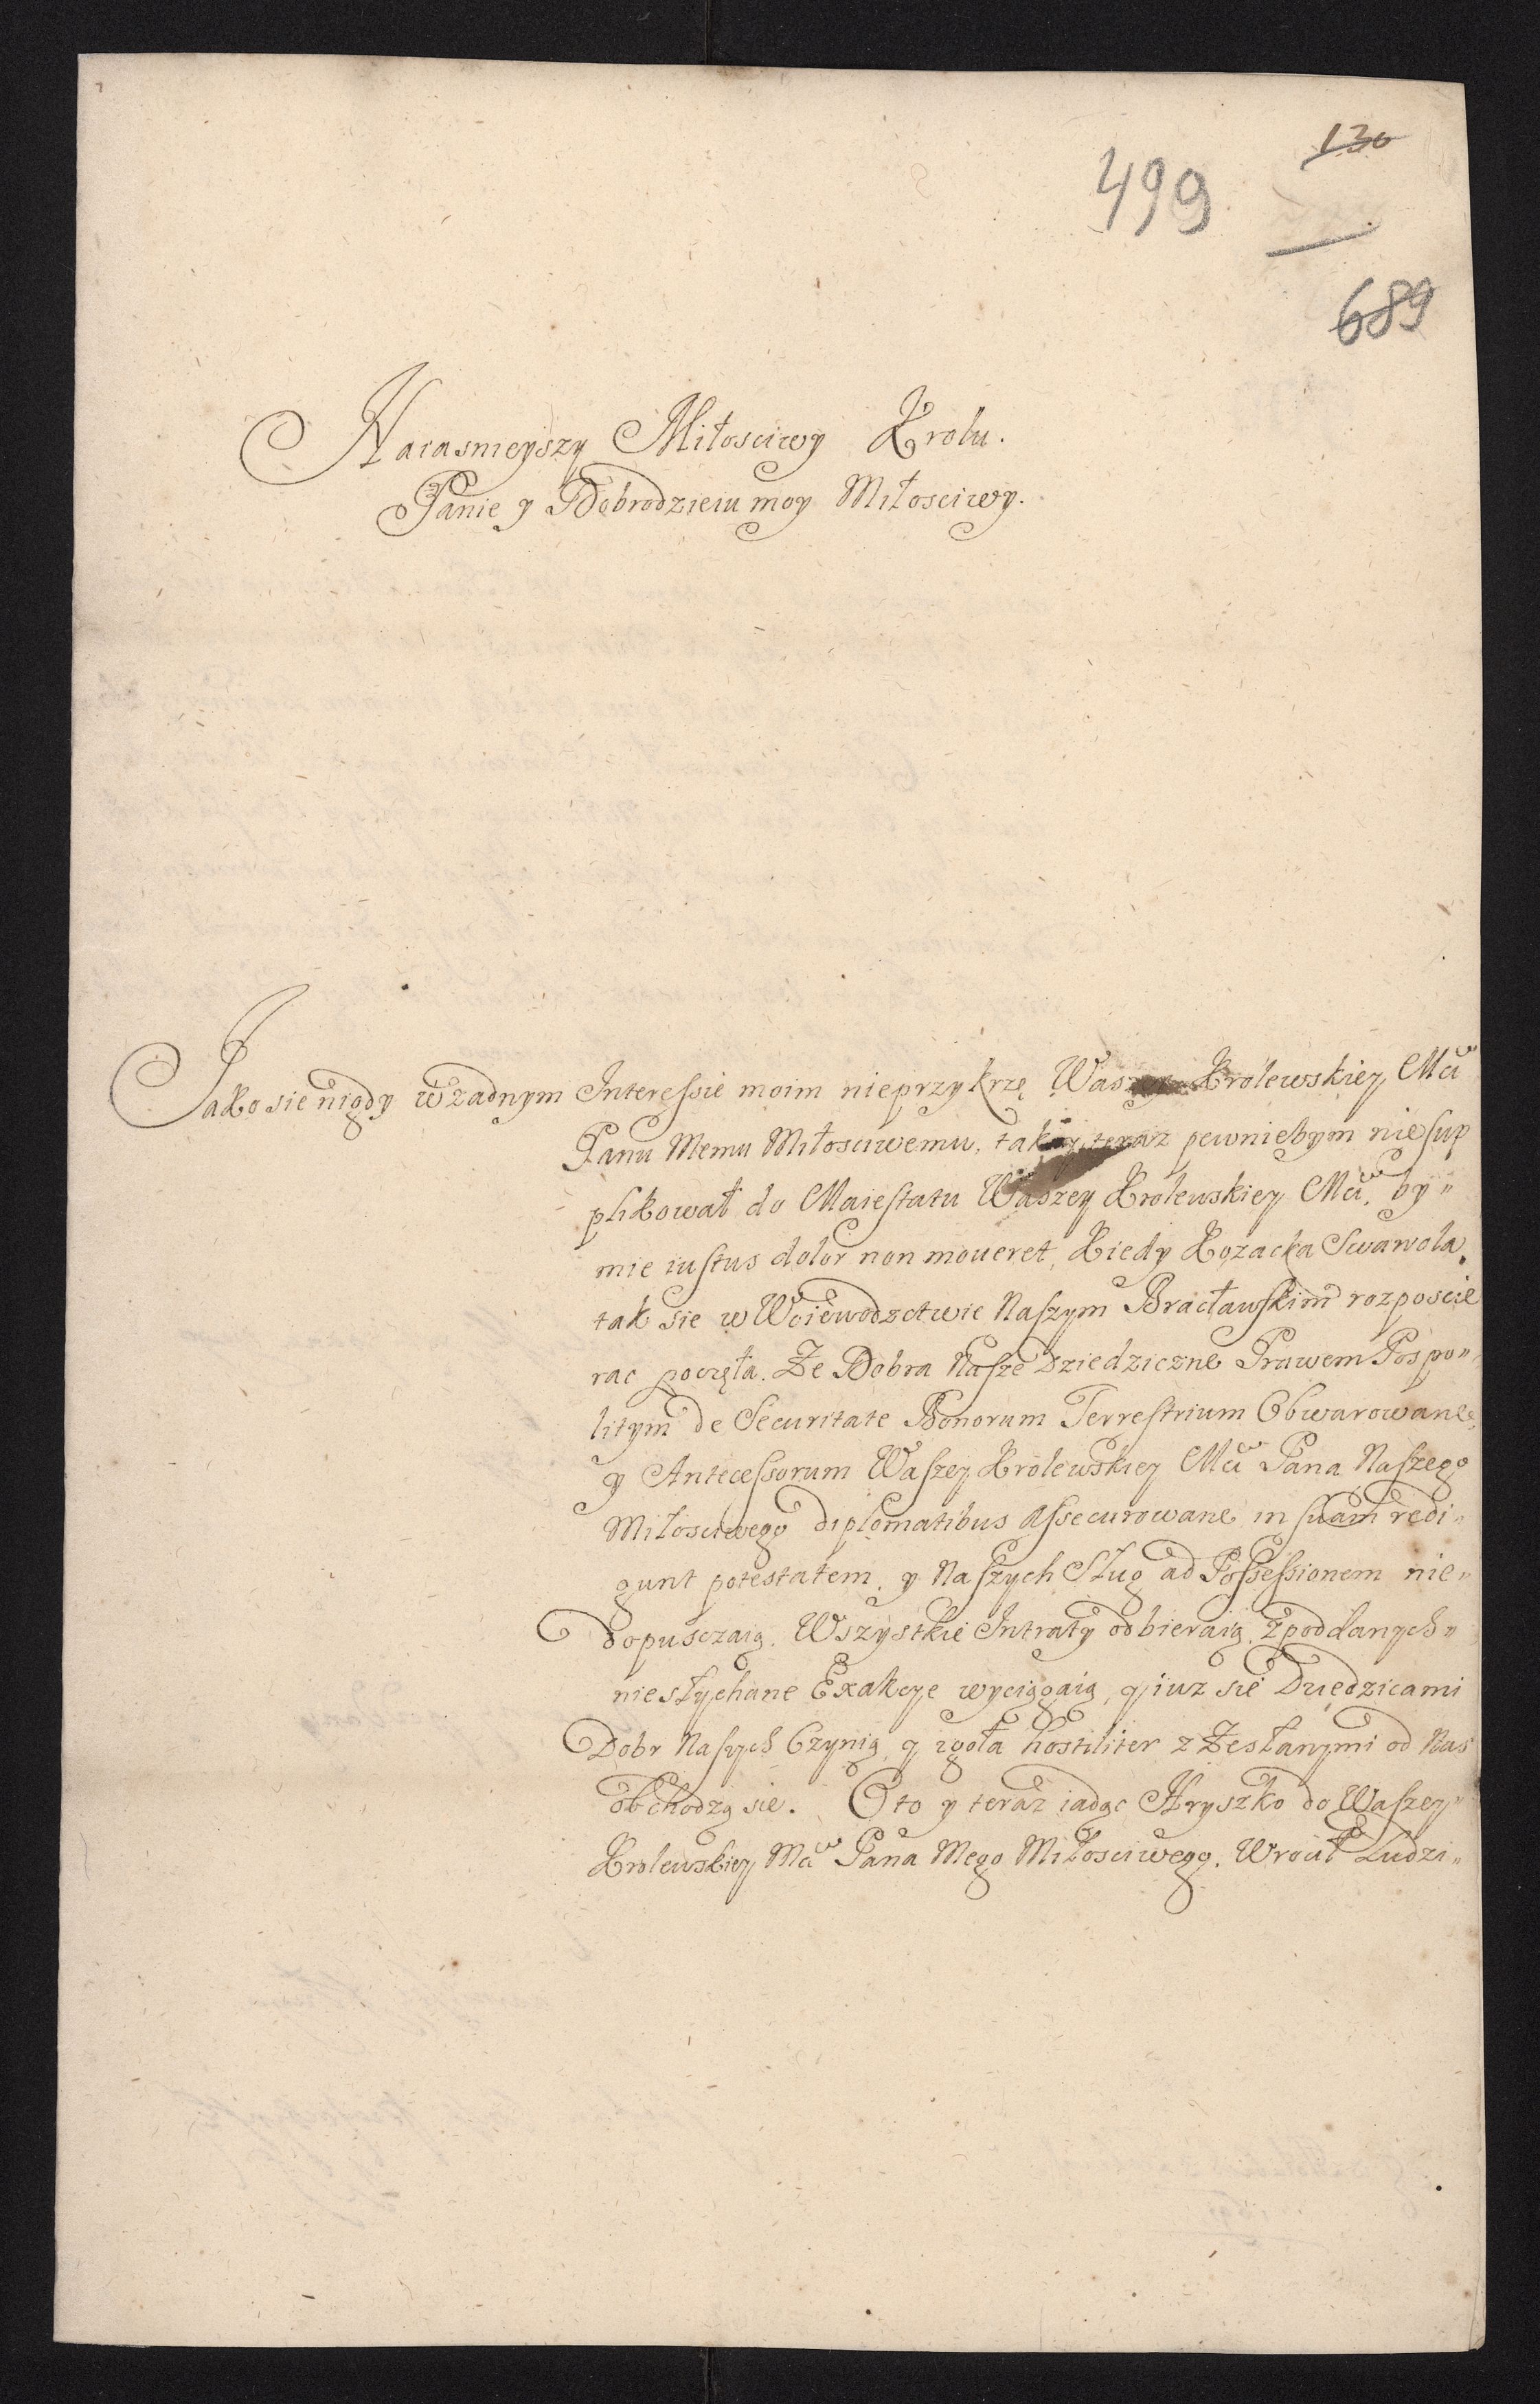 130
499
689
Naiasnieyszy Miłosciwy Krolu.
Panie y Dobrodzieiu moy Miłosciwy.
Jako sie nigdy w zadnym Interessie moim nieprzykrzę Waszey Królewskiey Mci
Panu Memu Miłosciwemu, tak y teraz pewniebym nie sup
plikował do Maiestatu Waszey Krolewskiey Mci, by„
mie iustus dolor non moveret, Kiedy Kozacka Swawola,
tak sie w Woiewodzctwie Naszym Bracławskim rozposcie
rac poczęła. Ze Dobra Nasze Dziedziczne Prawem Pospo„
litym de Securitate Bonorum Terrestrium Obwarowane,
y Antecessorum Waszey Krolewskiey Mci Pana Naszego
Miłosciwego diplomatibus Assecurowane in suam redi„
gunt potestatem, y Naszych Sług ad Possessionem nie„
dopusczaią. Wszystkie Intraty odbieraią, z poddanych„
niesłychane Exakcye wyciągaią, y iuz się Dziedzicami
Dobr Naszych Czynią, y zgoła hostiliter z Zesłanymi od Nas
obchodzą sie. Oto y teraz iadąc Hryszko do Waszey„
Krolewskiey Mci Pana Mego Miłosciwego. Wrocił Ludzi„